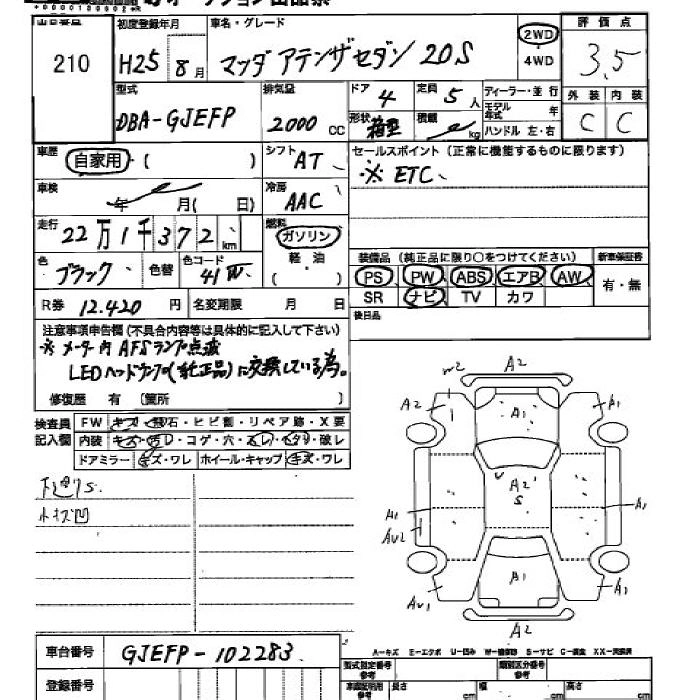 初度登録年月 車名・グレード 評価点
210 H25 8月 マツダ アテンザセダン 20S 2WD ・ 4WD 3,5
型式 排気量 ドア 4 定員 5人 ディーラー・並行 外装 内装
DBA-GJEFP 2000 CC 形状 箱型 積載 kg モデル年式 年 C C
ハンドル 左・右
車歴 自家用・( ) シフト AT、 セールスポイント (正常に機能するものに限ります)
※ ETC、
車検 年 月( 日) 冷房 AAC
走行 22万1千372 km 燃料 ガソリン
軽・油
( )
色 ブラック、 色替 色コード 41W
装備品 (純正品に限り○をつけてください) 新車保証書
PS PW ABS エアB AW 有・無
SR ナビ TV カワ
R券 12,420 円 名変期限 月 日 後日品
注意事項申告欄 (不具合内容等は具体的に記入して下さい)
※メーター内 AFSランプ点滅
LEDヘッドランプ(純正品)に交換している為。
修復歴 有 (箇所 )
検査員 FW キズ・飛石・ヒビ割・リペア跡・X要
記入欄 内装 キズ・汚レ・コゲ・穴・スレ・ヘタリ・破レ
ドアミラー キズ・ワレ ホイール・キャップ キズ・ワレ
下廻りS
小キズ凹
A2
W2
A2
A1
A1
A2
S
A1
A1
AU2
A1
AU1
A1
A2
車台番号 GJEFP-102283
A-キズ E-エクボ U-凹み W-補修跡 S-サビ C-腐食 XX-交換済
型式指定番号 参考 類別区分番号 参考
登録番号 長さ cm 幅 cm 高さ cm